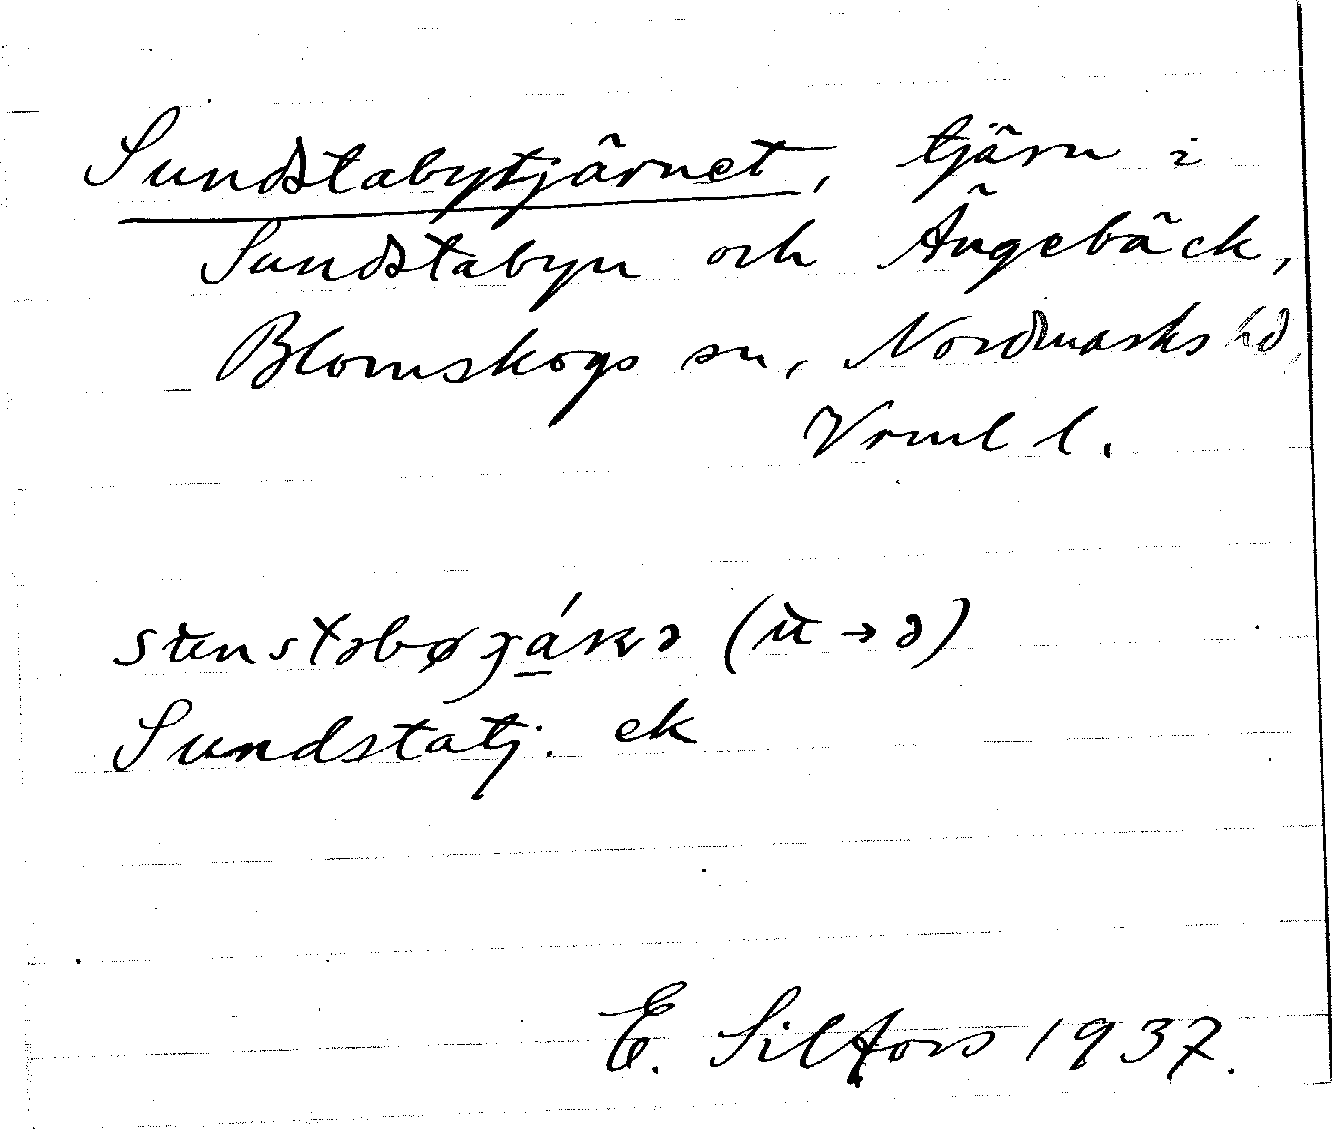 Sundstabytjärnet, tjärn i
Sundstabyn och Ängebäck,
Blomskogs sn, Nordmarks hd,
Vrml l.
(ù → ə)
Sundstatj. ek
E. Silfors 1937.